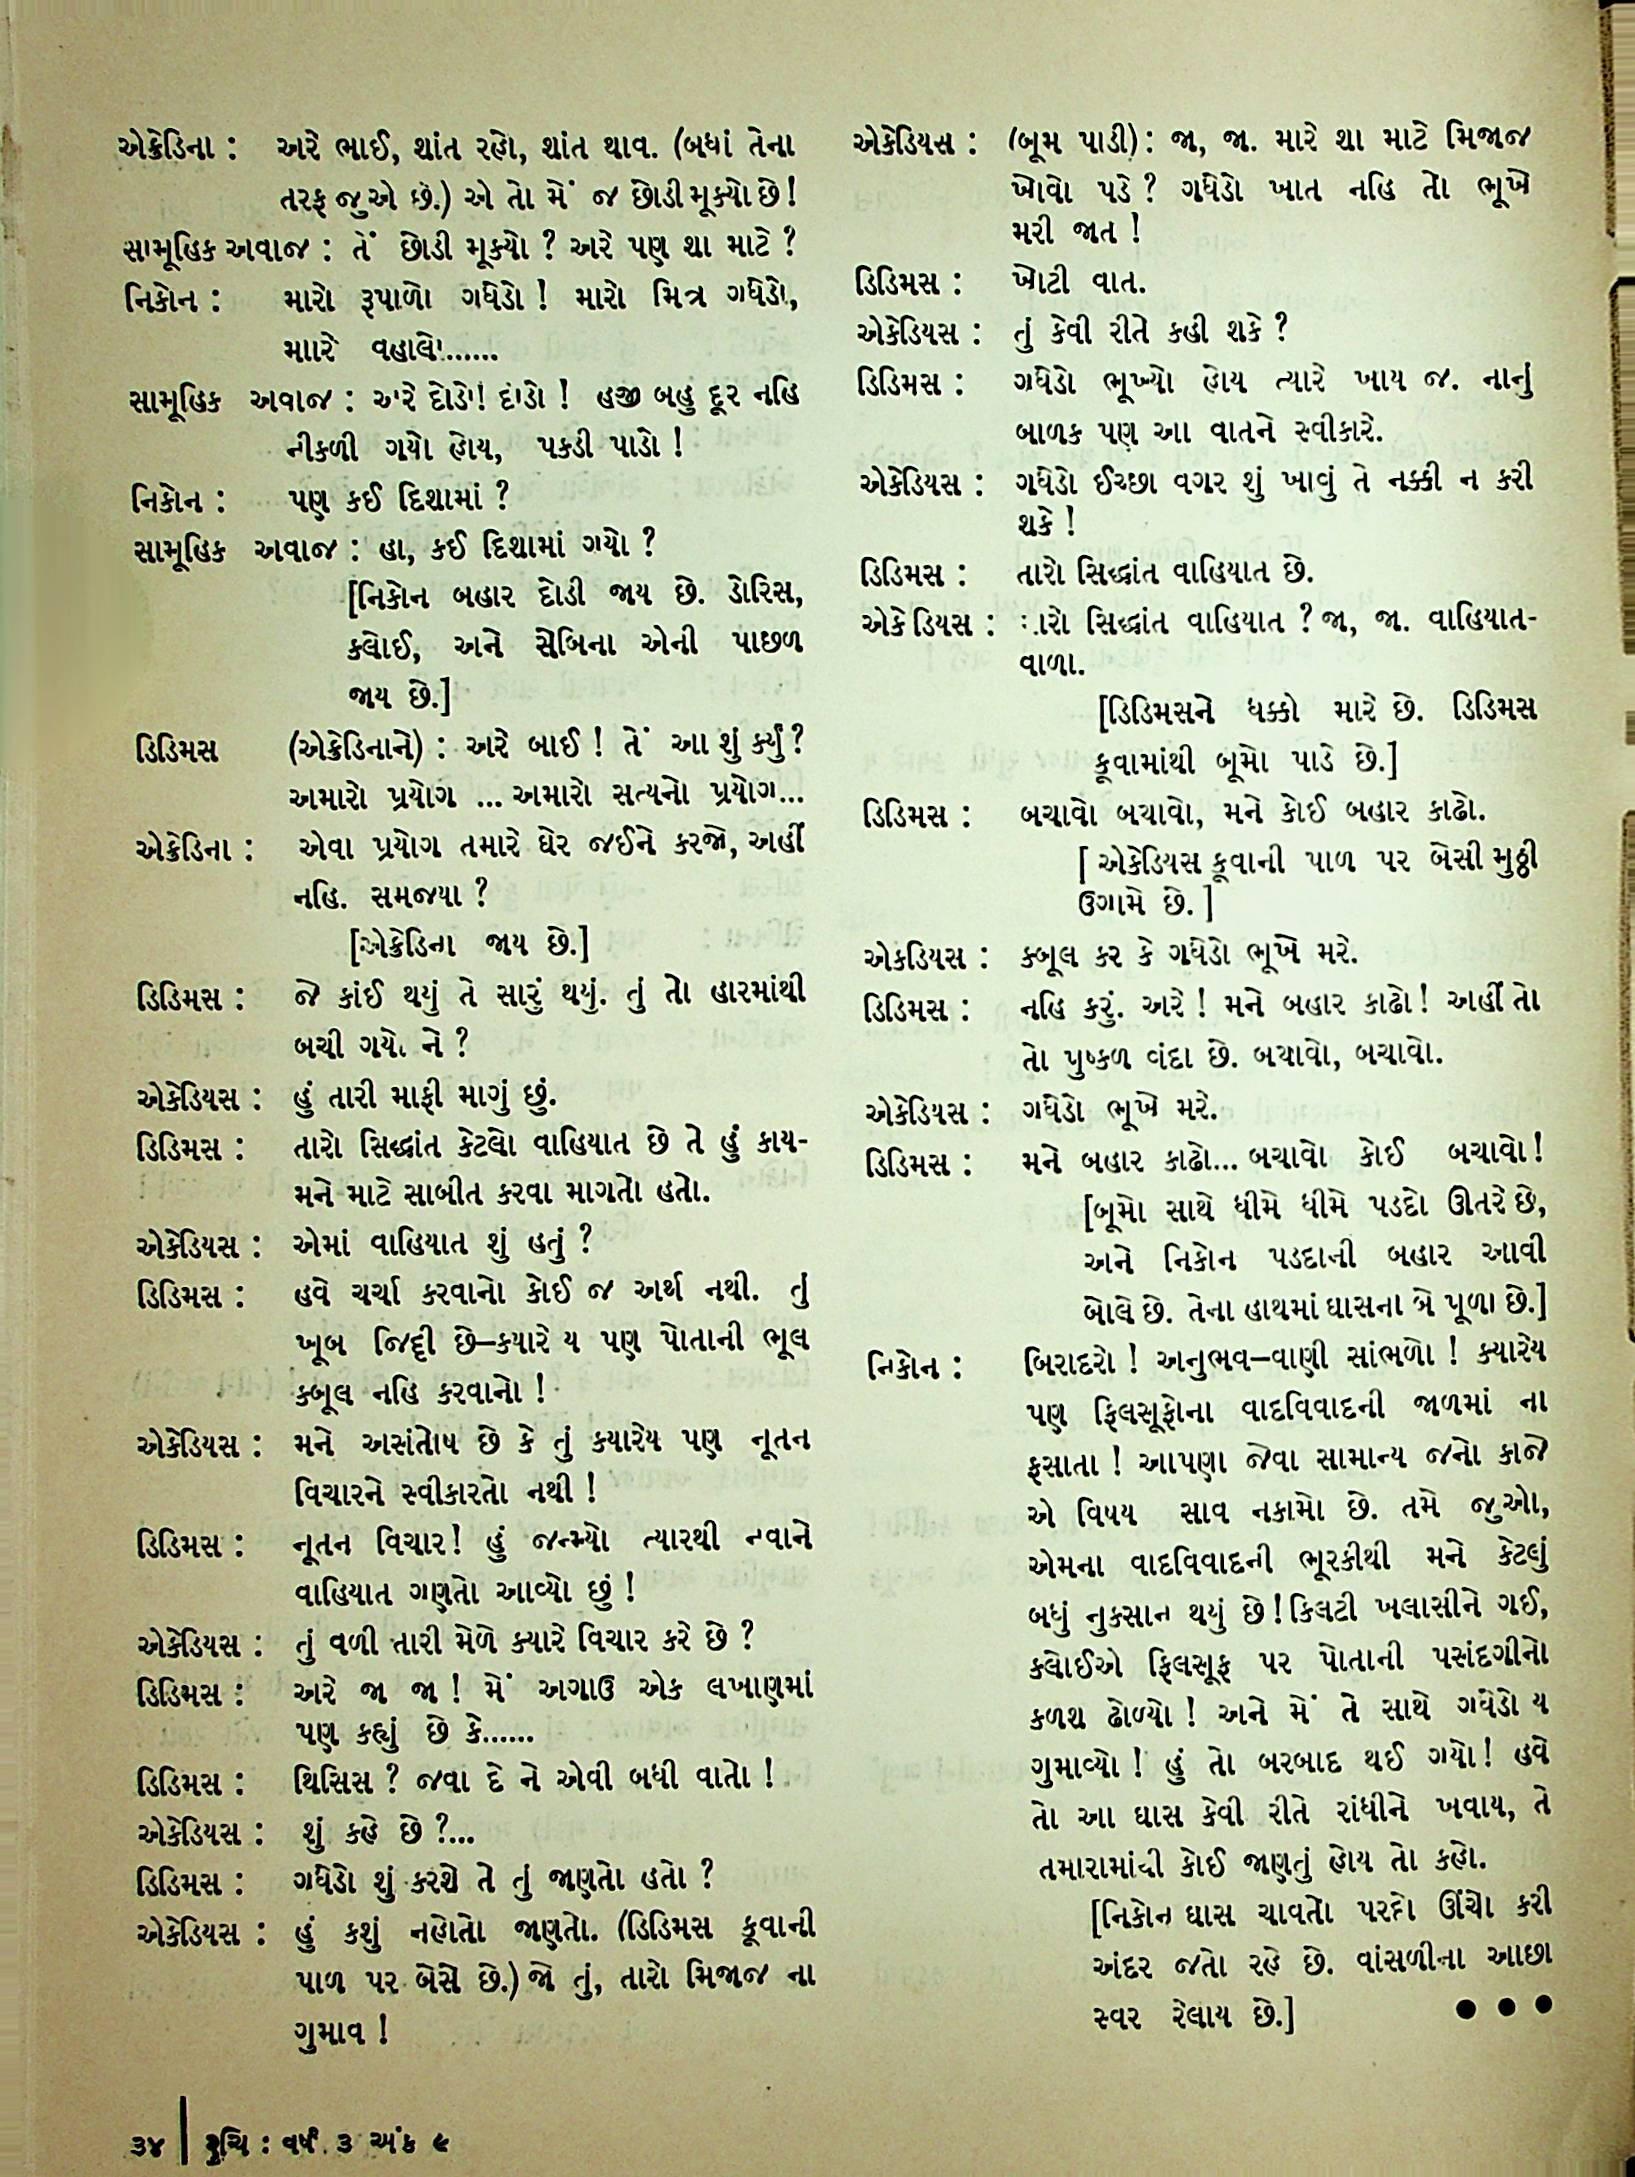 એક્રેડિના : અરે ભાઈ, શાંત રહો, શાંત થાવ. (બધાં તેના
તરફ જુએ છે.) એ તો મેં જ છોડી મૂક્યો છે!
સામૂહિક અવાજ : તેં છોડી મૂક્યો ? અરે પણ શા માટે ?
નિકોન : મારો રૂપાળો ગધેડો ! મારો મિત્ર ગધેડો,
માારે વહાલો......
સામૂહિક અવાજ : અરે દોડો! દોડો ! હજી બહુ દૂર નહિ
નીકળી ગયો હોય, પકડી પાડો !
નિકોન : પણ કઈ દિશામાં ?
સામૂહિક અવાજ : હા, કઈ દિશામાં ગયો ?
[નિકોન બહાર દોડી જાય છે. ડોરિસ,
ક્લોઈ, અને સેબિના એની પાછળ
જાય છે.]
ડિડિમસ (એક્રેડિનાને) : અરે બાઈ ! તેં આ શું કર્યું?
અમારો પ્રયોગ ... અમારો સત્યનો પ્રયોગ...
એક્રેડિના : એવા પ્રયોગ તમારે ઘેર જઈને કરજો, અહીં
નહિ. સમજયા ?
[એક્રેડિના જાય છે.]
ડિડિમસ : જે કાંઈ થયું તે સારું થયું. તું તો હારમાંથી
બચી ગયો ને ?
એક્રેડિયસ : હું તારી માફી માગું છું.
ડિડિમસ : તારો સિદ્ધાંત કેટલો વાહિયાત છે તે હું કાય-
મને માટે સાબીત કરવા માગતો હતો.
એક્રેડિયસ : એમાં વાહિયાત શું હતું ?
ડિડિમસ : હવે ચર્ચા કરવાનો કોઈ જ અર્થ નથી. તું
ખૂબ જિદ્દી છે–કયારે ય પણ પોતાની ભૂલ
કબૂલ નહિ કરવાનો !
એક્રેડિયસ : મને અસંતોષ છે કે તું કયારેય પણ નૂતન
વિચારને સ્વીકારતો નથી !
ડિડિમસ : નૂતન વિચાર! હું જન્મ્યો ત્યારથી નવાને
વાહિયાત ગણતો આવ્યો છું !
એક્રેડિયસ : તું વળી તારી મેળે ક્યારે વિચાર કરે છે ?
ડિડિમસ : અરે જા જા ! મેં અગાઉ એક લખાણમાં
પણ કહ્યું છે કે......
ડિડિમસ : થિસિસ ? જવા દે ને એવી બધી વાતો !
એક્રેડિયસ : શું કહે છે ?...
ડિડિમસ : ગધેડો શું કરશે તે તું જાણતો હતો ?
એક્રેડિયસ : હું કશું નહોતો જાણતો. (ડિડિમસ કૂવાની
પાળ પર બેસે છે.) જો તું, તારો મિજાજ ના
ગુમાવ !
એક્રેડિયસ : (બૂમ પાડી) : જા, જા. મારે શા માટે મિજાજ
ખોવો પડે ? ગધેડો ખાત નહિ તો ભૂખે
મરી જાત !
ડિડિમસ : ખોટી વાત.
એક્રેડિયસ : તું કેવી રીતે કહી શકે ?
ડિડિમસ : ગધેડો ભૂખ્યો હોય ત્યારે ખાય જ. નાનું
બાળક પણ આ વાતને સ્વીકારે.
એક્રેડિયસ : ગધેડો ઈચ્છા વગર શું ખાવું તે નક્કી ન કરી
શકે !
ડિડિમસ : તારો સિદ્ધાંત વાહિયાત છે.
એક્રેડિયસ : મારો સિદ્ધાંત વાહિયાત ? જા, જા. વાહિયાત-
વાળા.
[ડિડિમસને ધક્કો મારે છે. ડિડિમસ
કૂવામાંથી બૂમો પાડે છે.]
ડિડિમસ : બચાવો બચાવો, મને કોઈ બહાર કાઢો.
[ એક્રેડિયસ કૂવાની પાળ પર બેસી મુઠ્ઠી
ઉગામે છે. ]
એકડિયસ : કબૂલ કર કે ગધેડો ભૂખે મરે.
ડિડિમસ : નહિ કરું. અરે ! મને બહાર કાઢો ! અહીં તો
તો પુષ્કળ વંદા છે. બચાવો, બચાવો.
એક્રેડિયસ : ગધેડો ભૂખે મરે.
ડિડિમસ : મને બહાર કાઢો... બચાવો કોઈ બચાવો !
[બૂમો સાથે ધીમે ધીમે પડદો ઊતરે છે,
અને નિકોન પડદાની બહાર આવી
બોલે છે. તેના હાથમાં ઘાસના બે પૂળા છે.]
નિકોન : બિરાદરો ! અનુભવ–વાણી સાંભળો ! ક્યારેય
પણ ફિલસૂફોના વાદવિવાદની જાળમાં ના
ફસાતા ! આપણા જેવા સામાન્ય જનો કાજે
એ વિષય સાવ નકામો છે. તમે જુઓ,
એમના વાદવિવાદની ભૂરકીથી મને કેટલું
બધું નુકસાન થયું છે ! કિલટી ખલાસીને ગઈ,
ક્લોઈએ ફિલસૂફ પર પોતાની પસંદગીનો
કળશ ઢોળ્યો ! અને મેં તે સાથે ગધેડો ય
ગુમાવ્યો ! હું તો બરબાદ થઈ ગયો! હવે
તો આ ઘાસ કેવી રીતે રાંધીને ખવાય, તે
તમારામાંથી કોઈ જાણતું હોય તો કહો.
[નિકોન ઘાસ ચાવતો પરદો ઊંચો કરી
અંદર જતો રહે છે. વાંસળીના આછા
સ્વર રેલાય છે.] ● ● ●
૩૪ | રુચિ : વર્ષ ૩ અંક ૯